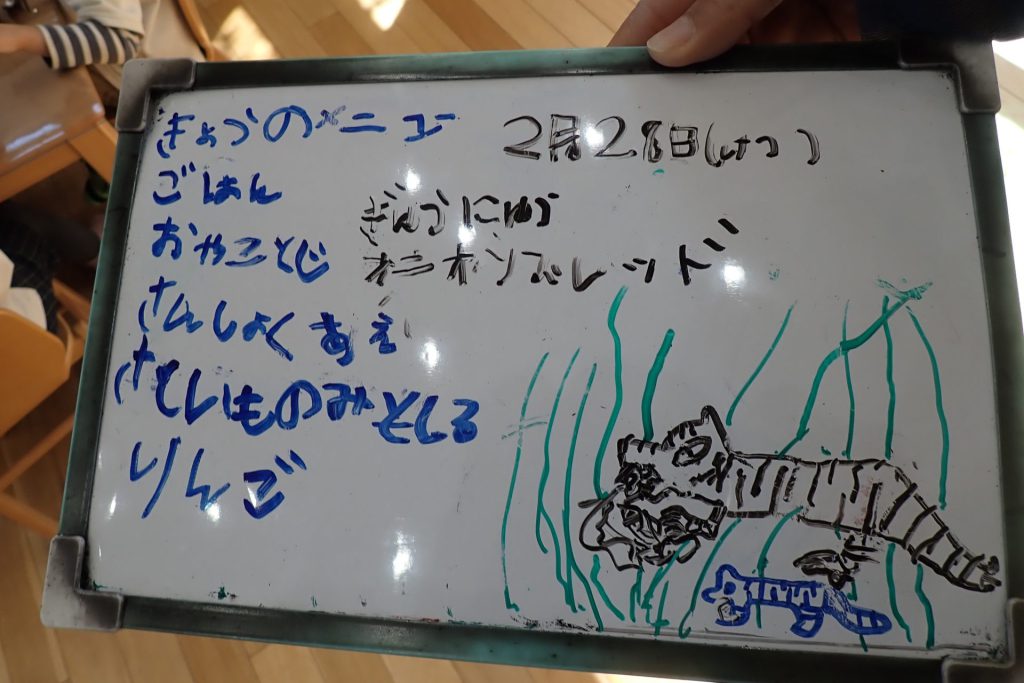 きょうのメニュー
2月28日(げつ)
ごはん
おやことじ
さんしょくあえ
さといものみそしる
りんご
ぎゅうにゅう
オニオンブレッド